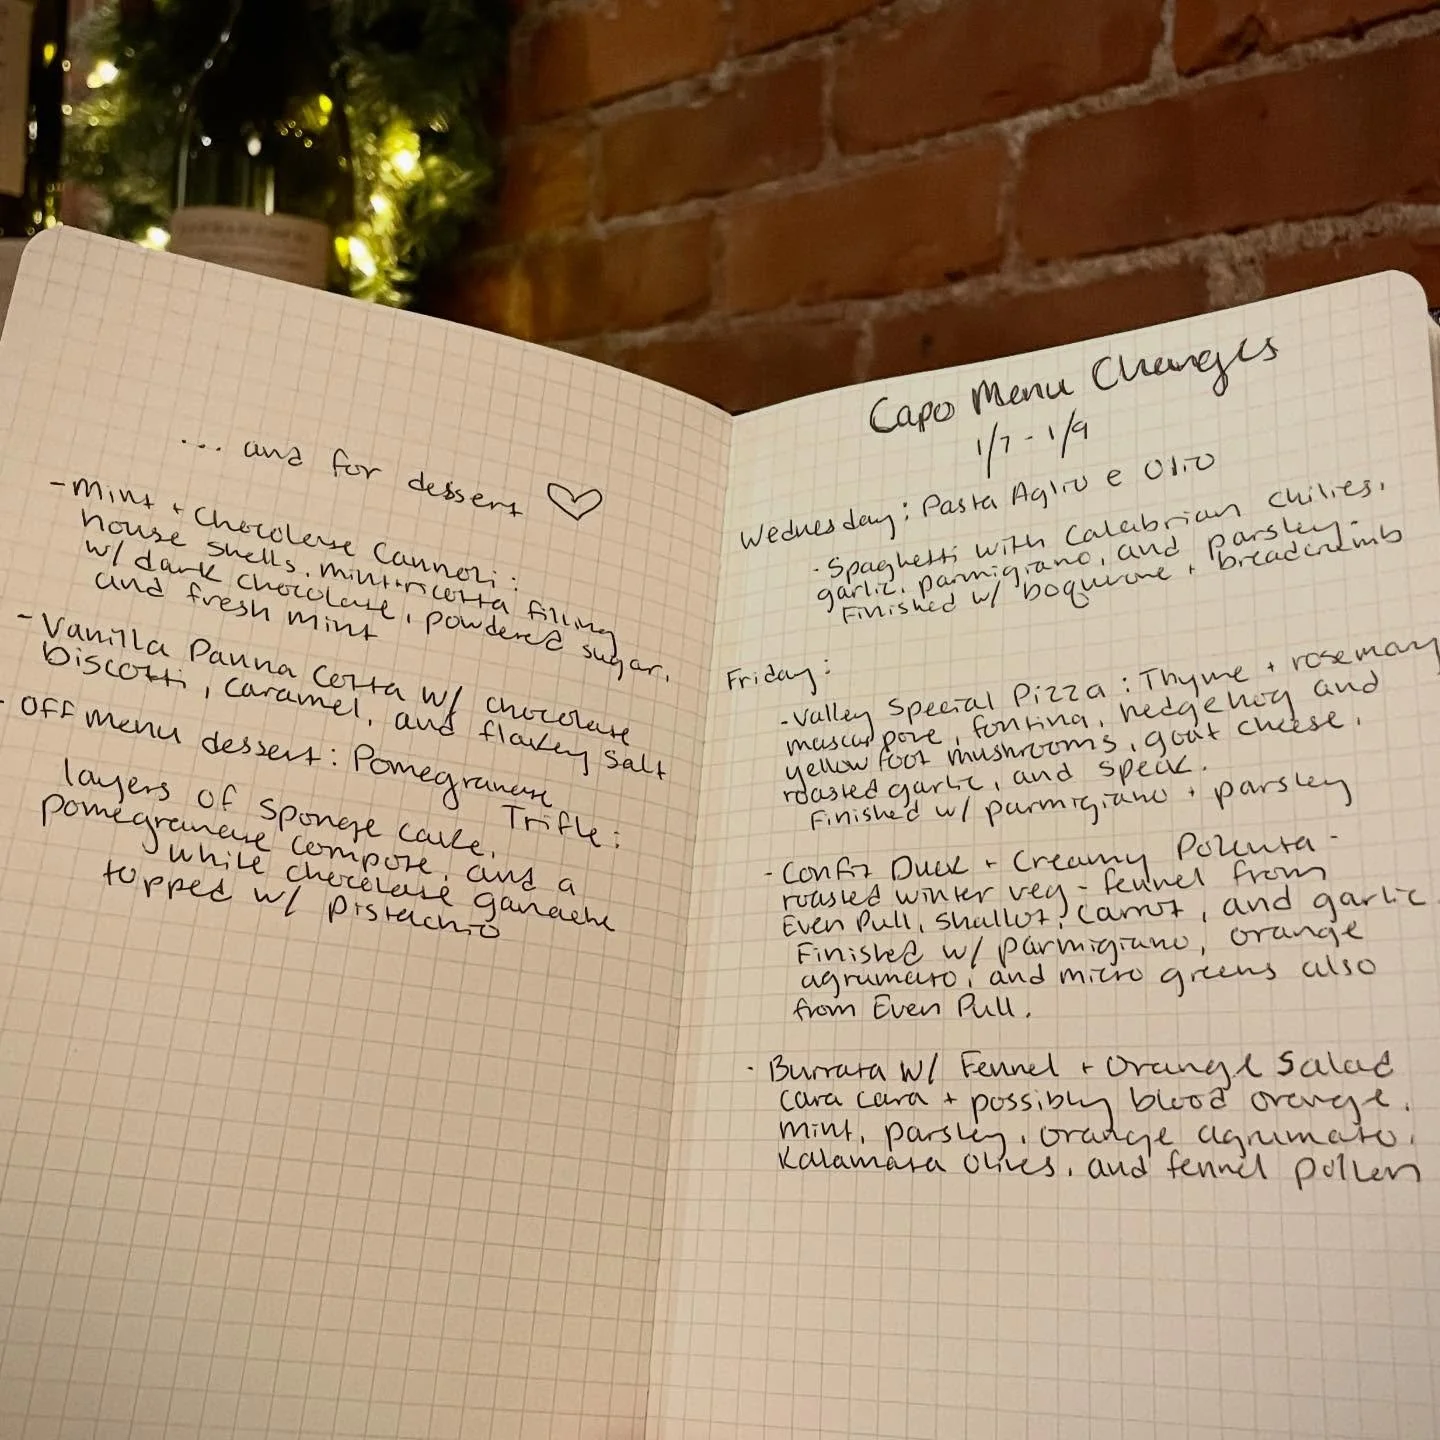 ... and for dessert ♡
- Mint + Chocolate Cannoli:
house shells, mint+ricotta filling
w/ dark chocolate, powdered sugar,
and fresh mint
- Vanilla Panna Cotta w/ chocolate
biscotti, caramel, and flakey salt
- Off menu dessert: Pomegranate
Trifle:
layers of sponge cake,
pomegranate compote, and a
white chocolate ganache
topped w/ pistachio
Capo Menu Changes
1/7 - 1/9
Wednesday: Pasta Aglio e Olio
- Spaghetti with Calabrian chilies,
garlic, parmigiano, and parsley.
Finished w/ boquerone + breadcrumb
Friday:
- Valley Special Pizza: Thyme + rosemary
mascarpone, fontina, hedgehog and
yellow foot mushrooms, goat cheese,
roasted garlic, and speak.
Finished w/ parmigiano + parsley
- Confit Duck + Creamy Polenta -
roasted winter veg - fennel from
Even Pull, shallot, carrot, and garlic
Finished w/ parmigiano, orange
agrumato, and micro greens also
from Even Pull.
- Burrata w/ Fennel + Orange Salad
cara cara + possibly blood orange,
mint, parsley, orange agrumato,
Kalamata olives, and fennel pollen